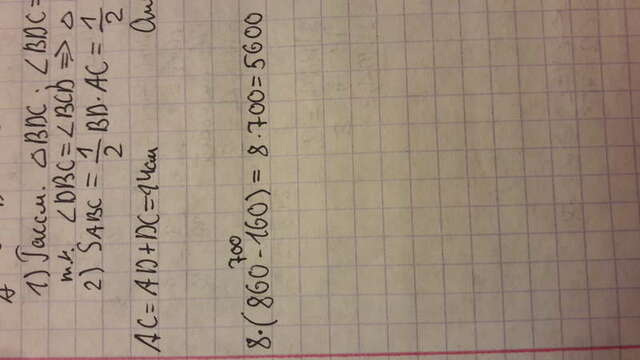 1) Рассм. △BDC: ∠BDC =
т.к. ∠DBC = ∠BCD ⇒ △
2) S_ABC = 1/2 BD · AC = 1/2
AC = AD + DC = 14 см
700
8·(860 - 160) = 8·700 = 5600